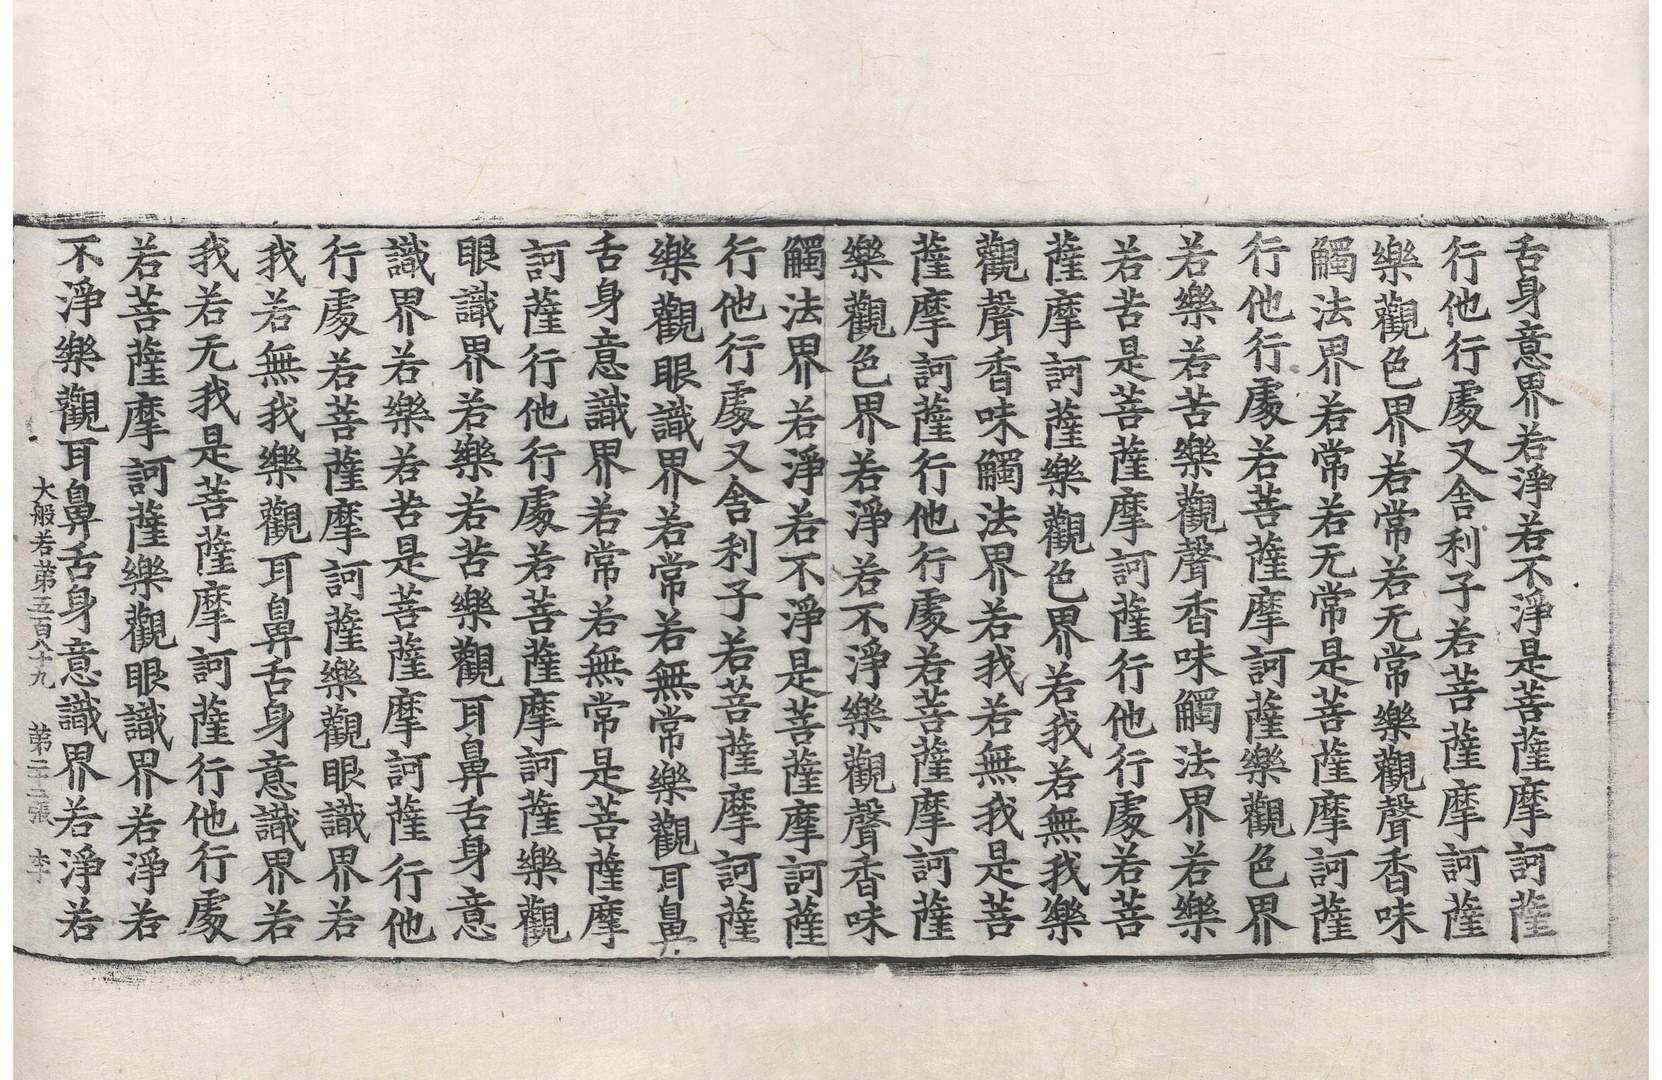 舌身意界若淨若不淨是菩薩摩訶薩
行他行處又舍利子若菩薩摩訶薩
樂觀色界若常若无常樂觀聲香味
觸法界若常若无常是菩薩摩訶薩
行他行處若菩薩摩訶薩樂觀色界
若樂若苦樂觀聲香味觸法界若樂
若苦是菩薩摩訶薩行他行處若菩
薩摩訶薩樂觀色界若我若無我樂
觀聲香味觸法界若我若無我是菩
薩摩訶薩行他行處若菩薩摩訶薩
樂觀色界若淨若不淨樂觀聲香味
觸法界若淨若不淨是菩薩摩訶薩
行他行處又舍利子若菩薩摩訶薩
樂觀眼識界若常若無常樂觀耳鼻
舌身意識界若常若無常是菩薩摩
訶薩行他行處若菩薩摩訶薩樂觀
眼識界若樂若苦樂觀耳鼻舌身意
識界若樂若苦是菩薩摩訶薩行他
行處若菩薩摩訶薩樂觀眼識界若
我若無我樂觀耳鼻舌身意識界若
我若无我是菩薩摩訶薩行他行處
若菩薩摩訶薩樂觀眼識界若淨若
不淨樂觀耳鼻舌身意識界若淨若
大般若第五百八十九 李